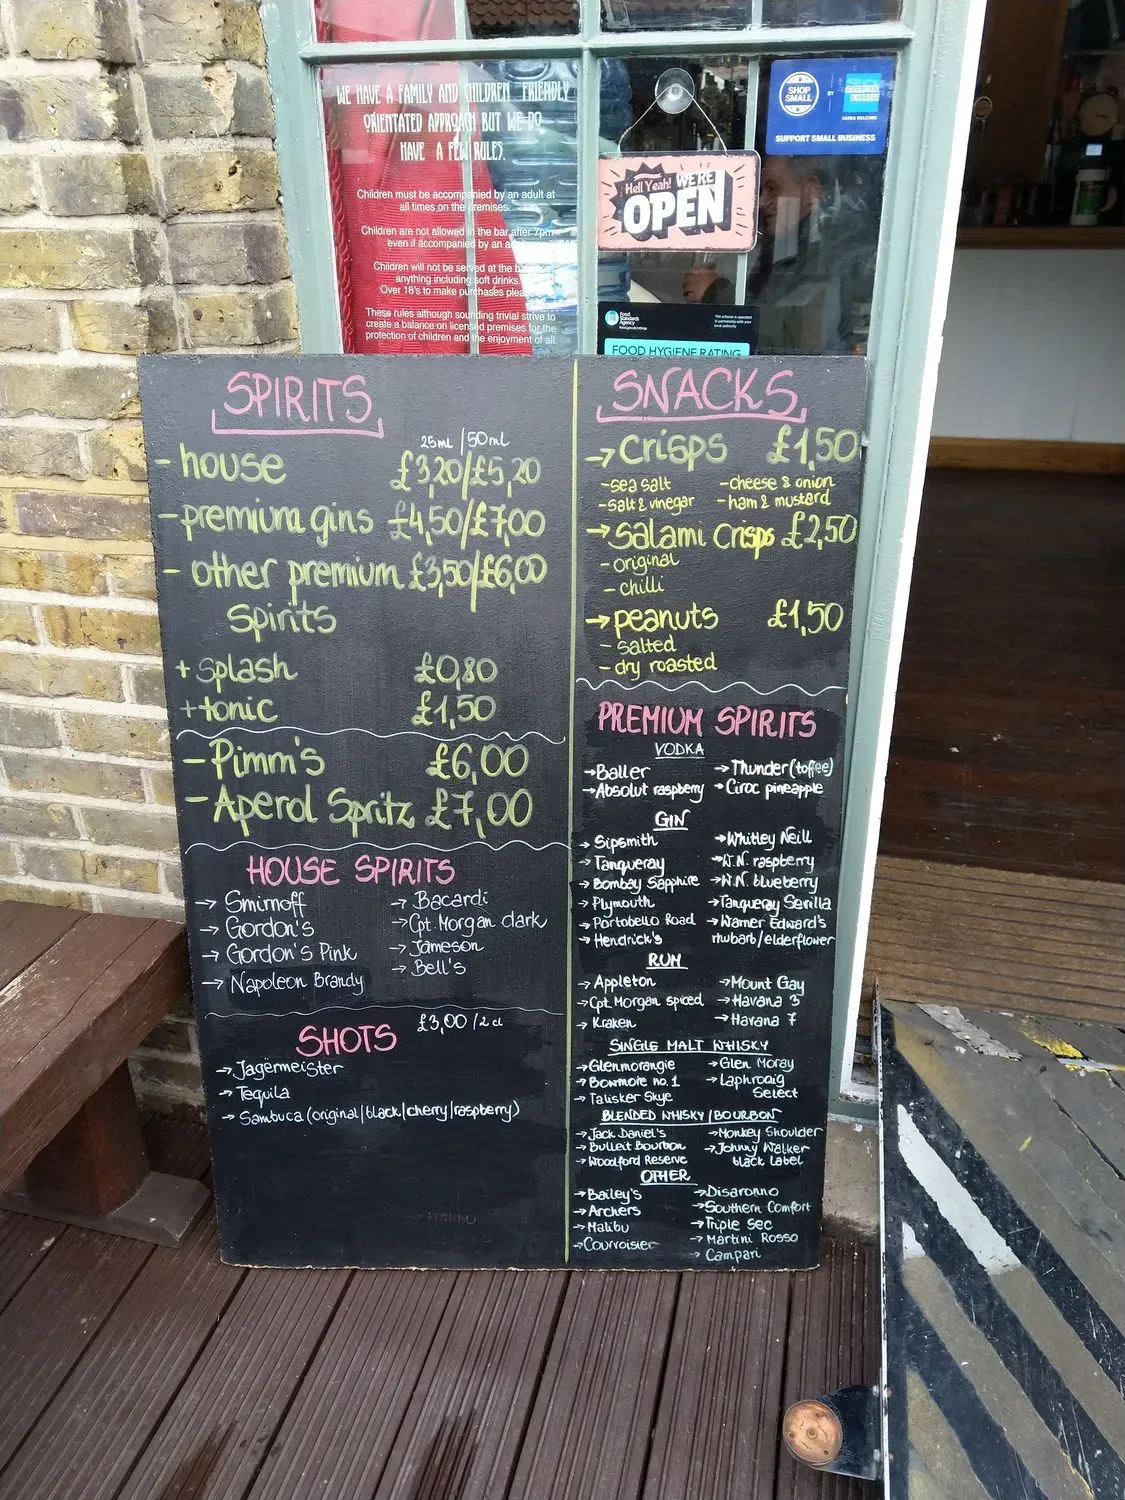 WE HAVE A FAMILY AND CHILDREN FRIENDLY
ORIENTATED APPROACH BUT WE DO
HAVE A FEW RULES.
Children must be accompanied by an adult at
all times on the premises.
Children are not allowed in the bar after 7pm
even if accompanied by an
Children will not be served at the
anything including soft drinks.
Over 18's to make purchases please
These rules although sounding trivial strive to
create a balance on licensed premises for the
protection of children and the enjoyment of all.
SHOP
SMALL
BY
AMERICAN
EXPRESS
CARDS WELCOME
SUPPORT SMALL BUSINESS
Hell Yeah! WE'RE
OPEN
Food
Standards
Agency
FOOD HYGIENE RATING
SPIRITS
25ml / 50ml
- house £3,20/£5,20
- premium gins £4,50/£7,00
- other premium £3,50/£6,00
spirits
+ splash £0,80
+ tonic £1,50
- Pimm's £6,00
- Aperol Spritz £7,00
HOUSE SPIRITS
→ Smirnoff
→ Gordon's
→ Gordon's Pink
→ Napoleon Brandy
→ Bacardi
→ Cpt. Morgan dark
→ Jameson
→ Bell's
SHOTS £3,00 / 2cl
→ Jagermeister
→ Tequila
→ Sambuca (original/black/cherry/raspberry)
SNACKS
→ crisps £1,50
- sea salt - cheese & onion
- salt & vinegar - ham & mustard
→ salami crisps £2,50
- original
- chilli
→ peanuts £1,50
- salted
- dry roasted
PREMIUM SPIRITS
VODKA
→ Baller → Thunder (toffee)
→ Absolut raspberry → Ciroc pineapple
GIN
→ Sipsmith → Whitley Neill
→ Tanqueray → W.N. raspberry
→ Bombay Sapphire → W.N. blueberry
→ Plymouth → Tanqueray Sevilla
→ Portobello Road → Warner Edward's
→ Hendrick's rhubarb/elderflower
RUM
→ Appleton → Mount Gay
→ Cpt. Morgan spiced → Havana 3
→ Kraken → Havana 7
SINGLE MALT WHISKY
→ Glenmorangie → Glen Moray
→ Bowmore no. 1 → Laphroaig
→ Talisker Skye Select
BLENDED WHISKY / BOURBON
→ Jack Daniel's → Monkey Shoulder
→ Bulleit Bourbon → Johnny Walker
→ Woodford Reserve black Label
OTHER
→ Bailey's → Disaronno
→ Archers → Southern Comfort
→ Malibu → Triple Sec
→ Courvoisier → Martini Rosso
→ Campari